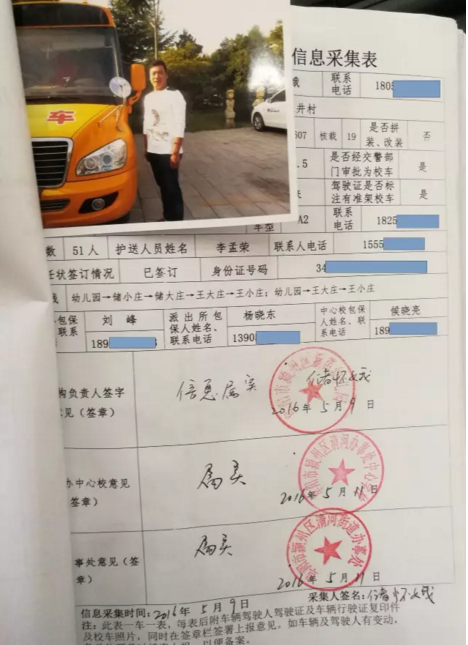 车
信息采集表
联系电话 1805
井村
607 核载 19 是否拼装、改装 否
.5 是否经交警部门审批为校车 是
驾驶证是否标注有准架校车 是
车型 A2 联系电话 1825
数 51人 护送人员姓名 李孟荣 联系人电话 1555
任状签订情况 已签订 身份证号码 34
线 幼儿园→储小庄→储大庄→王大庄→王小庄；幼儿园→王大庄→王小庄
包保 联系 刘峰 189 派出所包保人姓名、联系电话 杨晓东 1390 中心校包保人姓名、联系电话 侯晓亮 189
构负责人签字
意见（签章） 信息属实 2016年5月9日
办中心校意见
（签章） 属实 2016年5月11日
事处意见（签章） 属实 2016年5月11日
信息采集时间：2016年5月9日 采集人签名：
注：此表一车一表，每表后附车辆驾驶人驾驶证及车辆行驶证复印件
及校车照片，同时在签章栏签署上报意见，如车辆及驾驶人有变动，
以便备案。